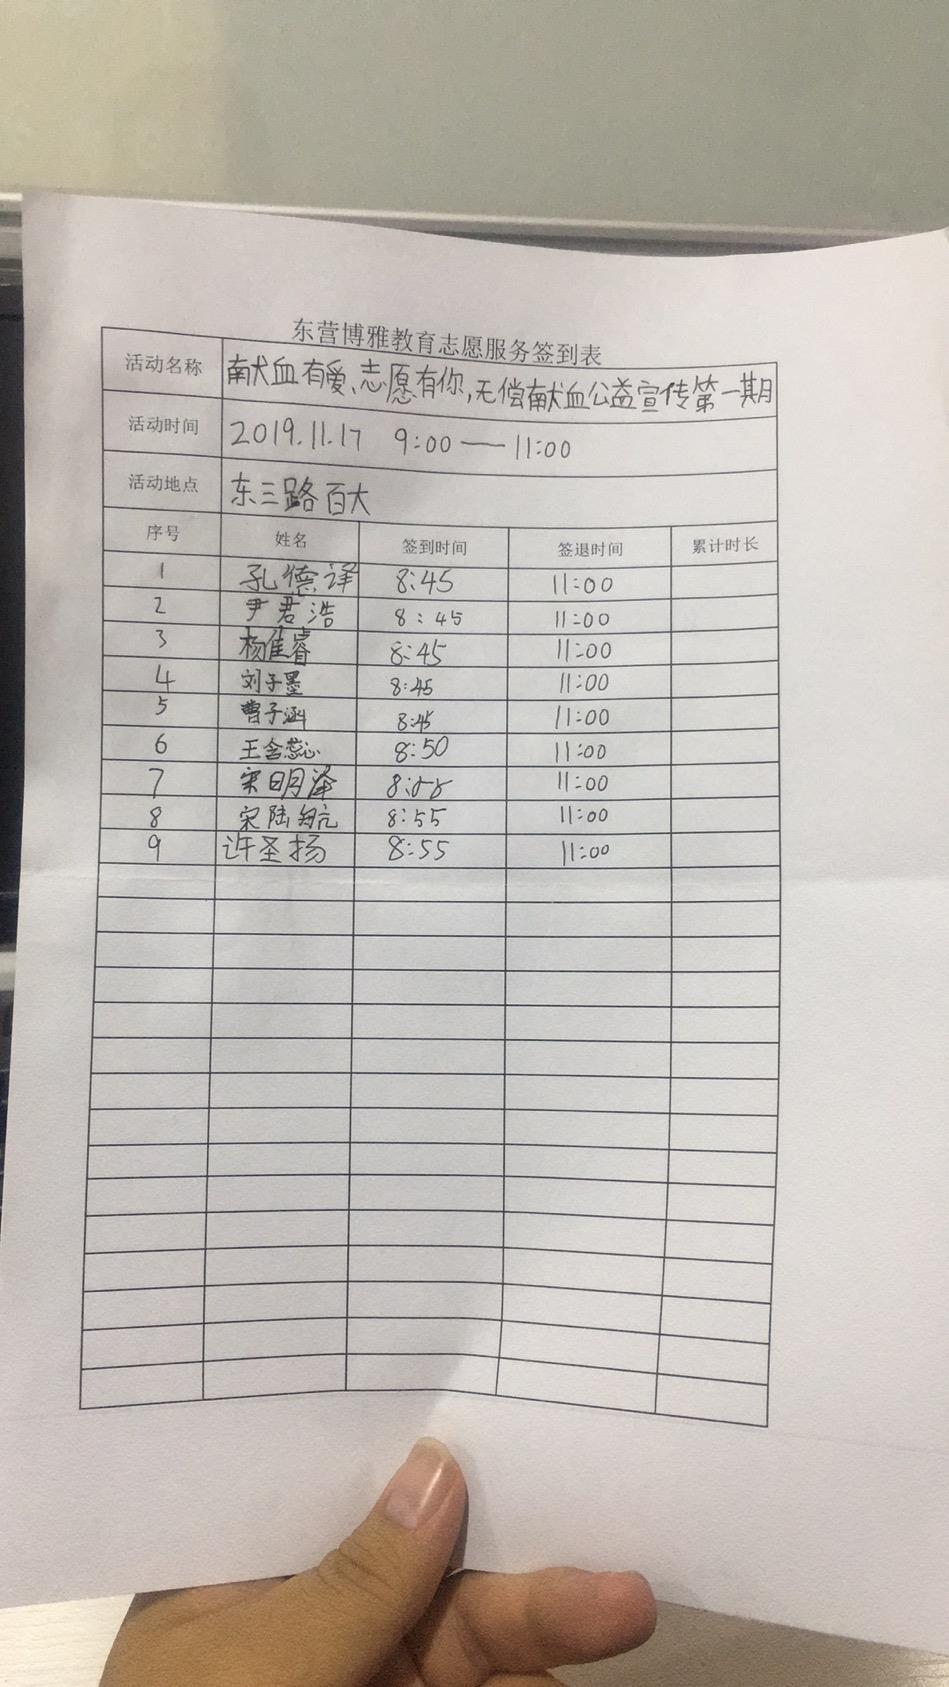 东营博雅教育志愿服务签到表
活动名称 献血有爱、志愿有你,无偿献血公益宣传第一期
活动时间 2019.11.17 9:00——11:00
活动地点 东三路百大
序号 姓名 签到时间 签退时间 累计时长
1 孔德译 8:45 11:00
2 尹君浩 8:45 11:00
3 杨佳睿 8:45 11:00
4 刘子墨 8:45 11:00
5 曹子涵 8:45 11:00
6 王含蕊 8:50 11:00
7 宋明泽 8:55 11:00
8 宋陆航 8:55 11:00
9 许圣扬 8:55 11:00